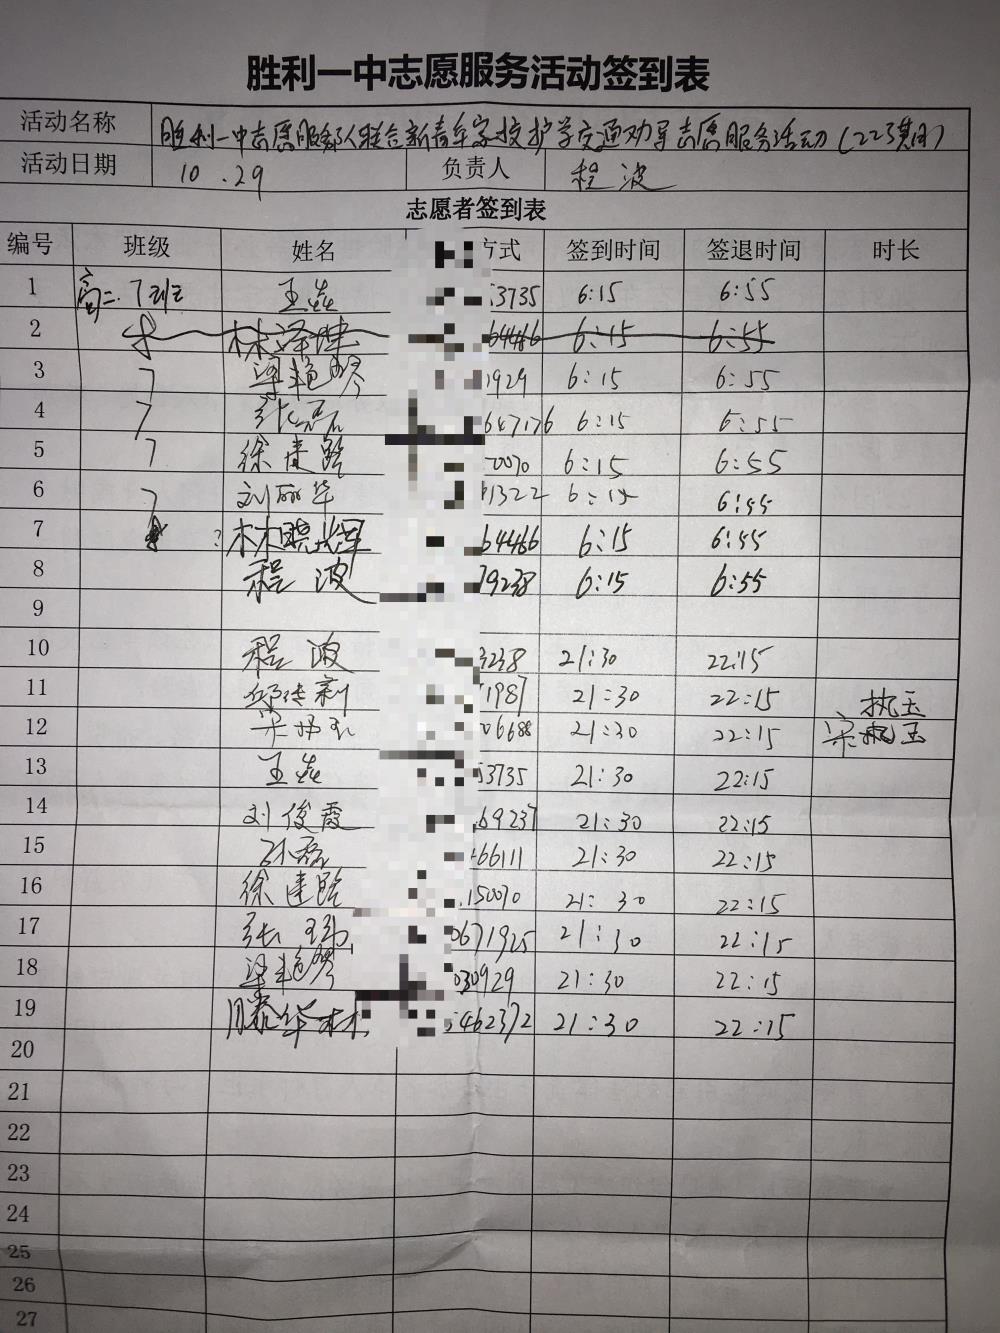 胜利一中志愿服务活动签到表
活动名称 胜利一中志愿服务队联合新青年家校护学交通劝导志愿服务活动(223期)
活动日期 10.29 负责人 程波
志愿者签到表
编号 班级 姓名 方式 签到时间 签退时间 时长
1 高二.7班 王焱 53735 6:15 6:55
2 林泽 64466 6:15 6:55
3 7 梁艳琴 1929 6:15 6:55
4 7 647176 6:15 6:55
5 7 徐建路 70070 6:15 6:55
6 7 刘丽华 1322 6:15 6:55
7 林晓辉 64466 6:15 6:55
8 程波 79238 6:15 6:55
9
10 程波 3238 21:30 22:15
11 邱传新 1987 21:30 22:15 执玉
12 宋 06688 21:30 22:15 宋执玉
13 王焱 53735 21:30 22:15
14 刘俊霞 69237 21:30 22:15
15 孙磊 66111 21:30 22:15
16 徐建路 150070 21:30 22:15
17 张 0671925 21:30 22:15
18 梁艳琴 030929 21:30 22:15
19 滕华林 5462372 21:30 22:15
20
21
22
23
24
25
26
27